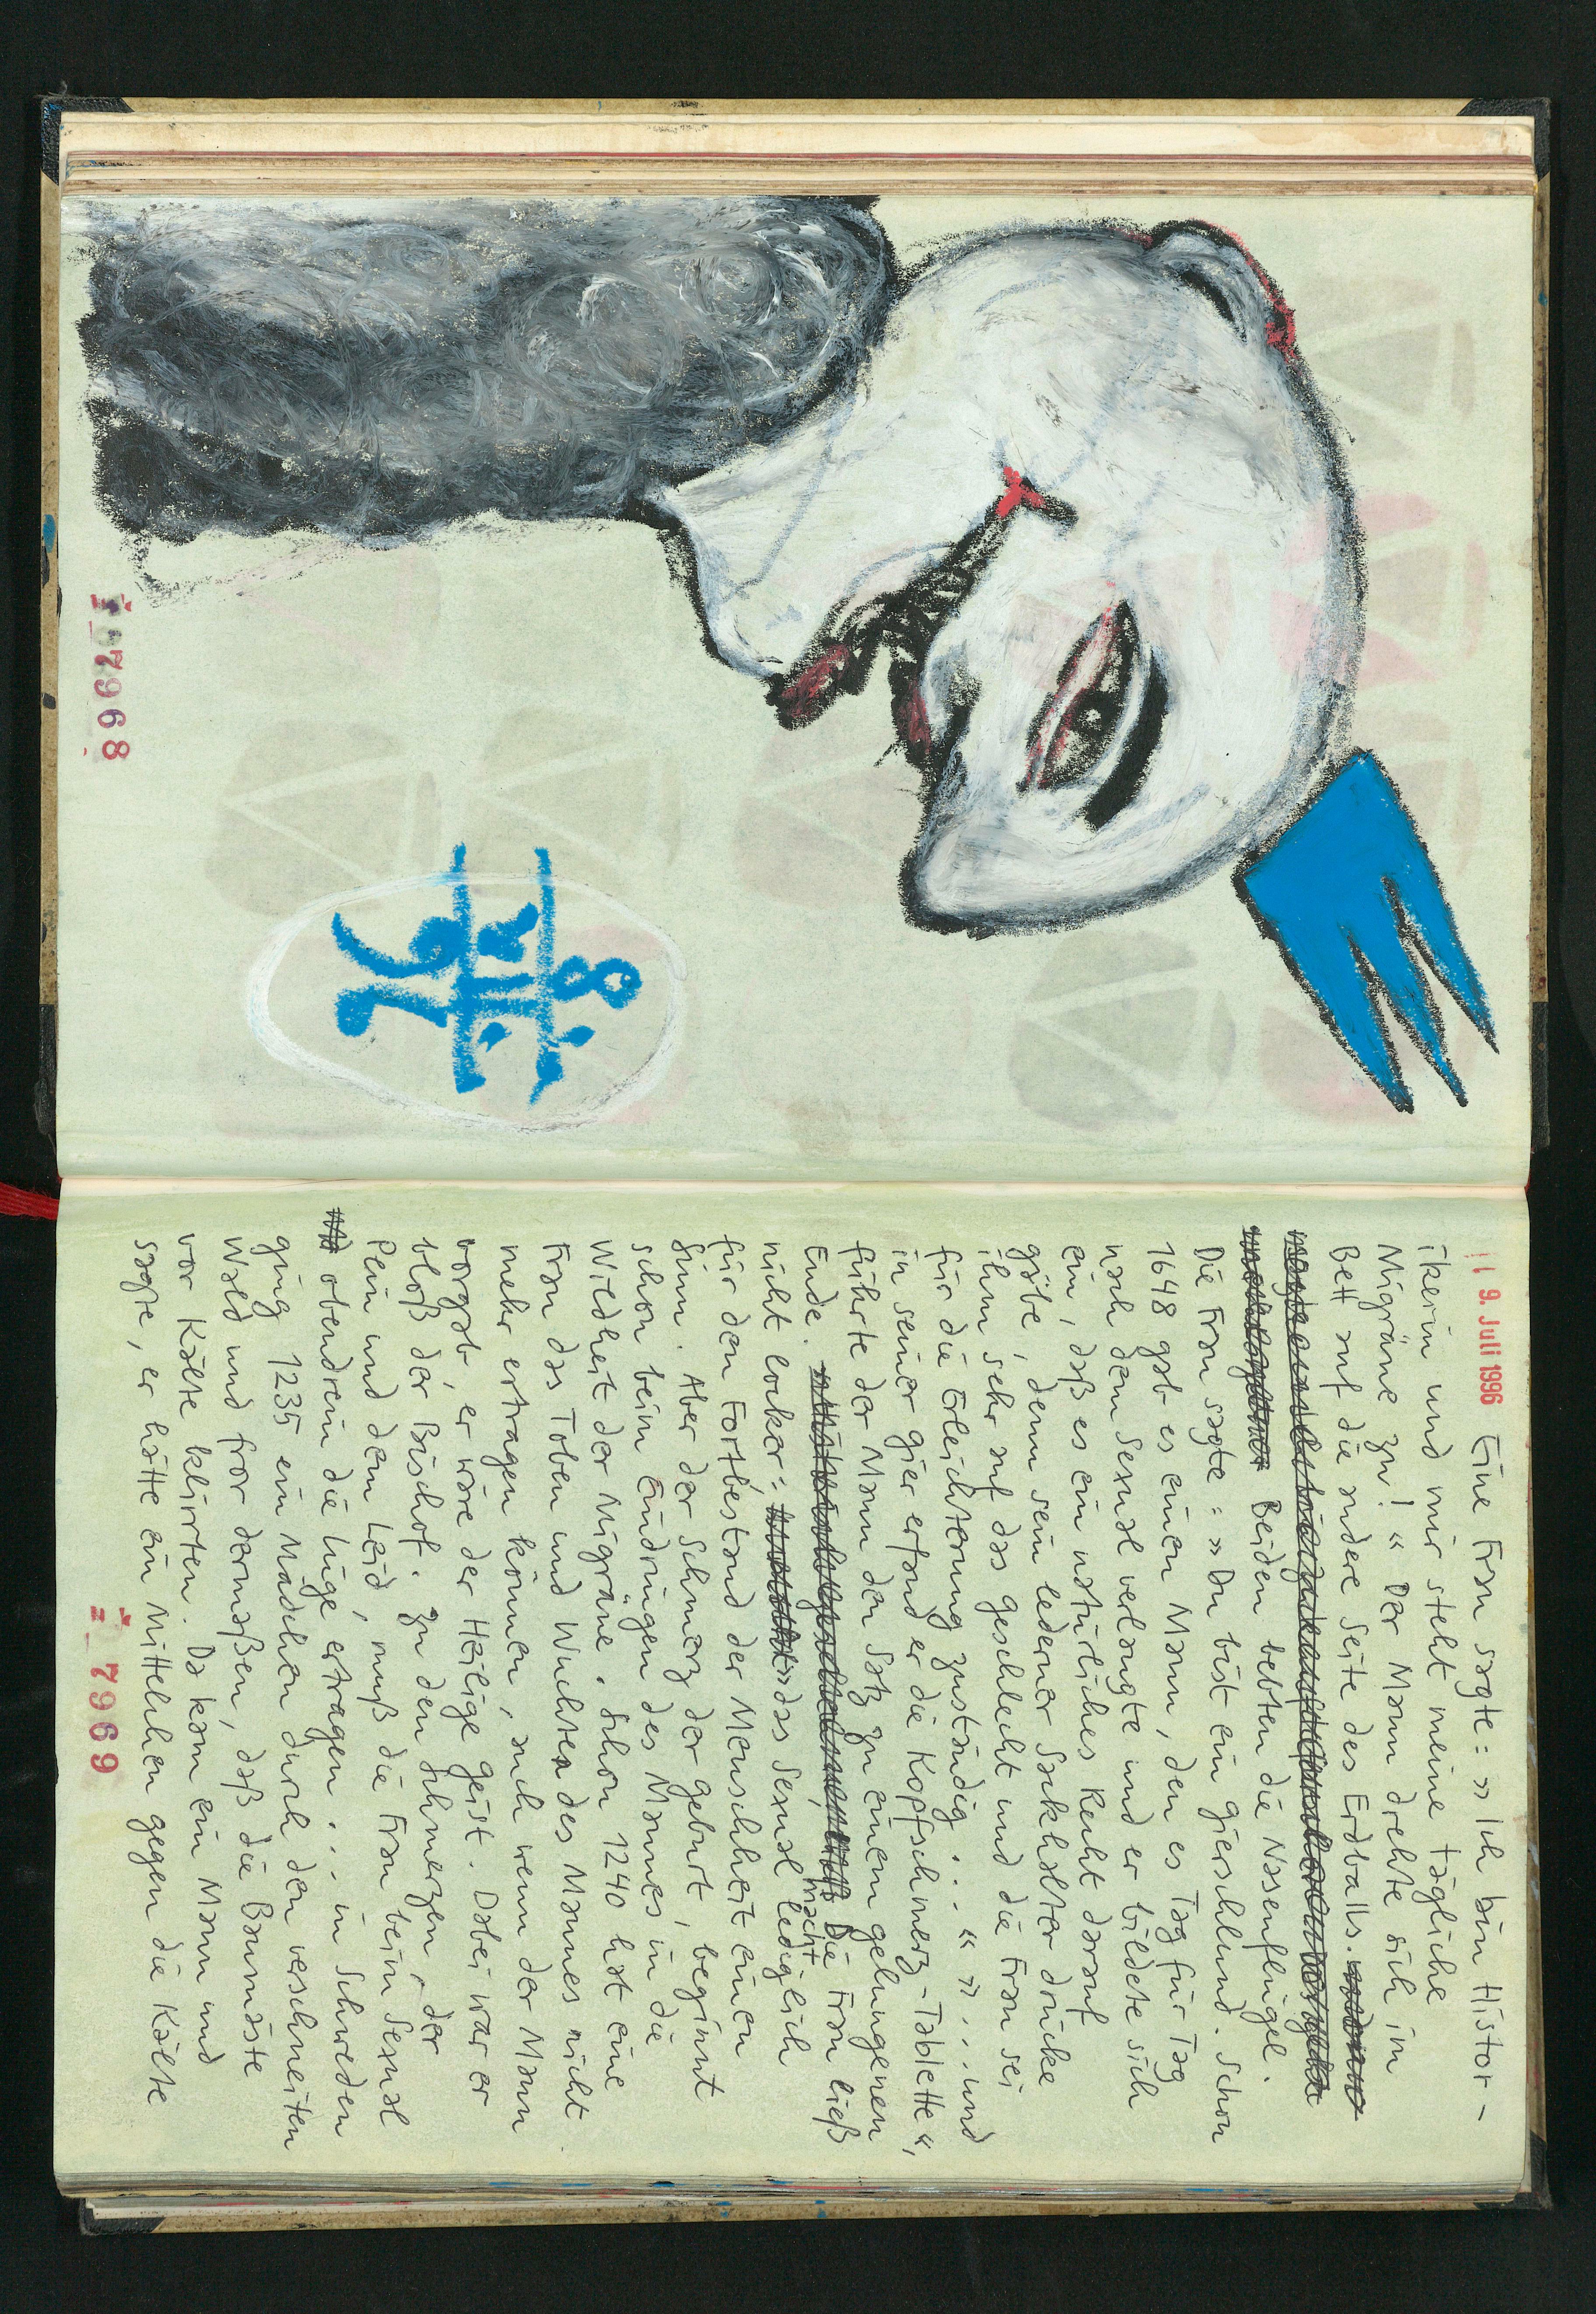 I 7968
11 9. Juli 1996 Eine Frau sagte: »Ich bin Histor-
ikerin und mir steht meine tägliche
Migräne zu!« Der Mann drehte sich im
Bett auf die andere Seite des Erdballs.
Beiden bebten die Nasenflügel.
Die Frau sagte: »Du bist ein Gierschlund. Schon
1648 gab es einen Mann, den es Tag für Tag
nach dem Sexual verlangte und er bildete sich
ein, daß es ein natürliches Recht darauf
gäbe, denn sein lederner Sackhalter drücke
ihm sehr auf das Geschlecht und die Frau sei
für die Erleichterung zuständig...« »...und
in seiner Gier erfand er die Kopfschmerz-Tablette«,
führte der Mann den Satz zu einem gelungenen
Ende. Die Frau ließ
nicht locker: »das Sexual macht lediglich
für den Fortbestand der Menschheit einen
Sinn. Aber der Schmerz der Geburt, beginnt
schon beim Eindringen des Mannes in die
Wildheit der Migräne. Schon 1240 hat eine
Frau das Toben und Wuchten des Mannes nicht
mehr ertragen können, auch wenn der Mann
vorgab, er wäre der Heilige Geist. Dabei war er
bloß der Bischof. Zu den Schmerzen, der
Pein und dem Leid, muß die Frau beim Sexual
obendrein die Lüge ertragen... in Schweden
ging 1235 ein Mädchen durch den verschneiten
Wald und fror dermaßen, daß die Baumäste
vor Kälte klirrten. Da kam ein Mann und
sagte, er hätte ein Mittelchen gegen die Kälte
I 7969